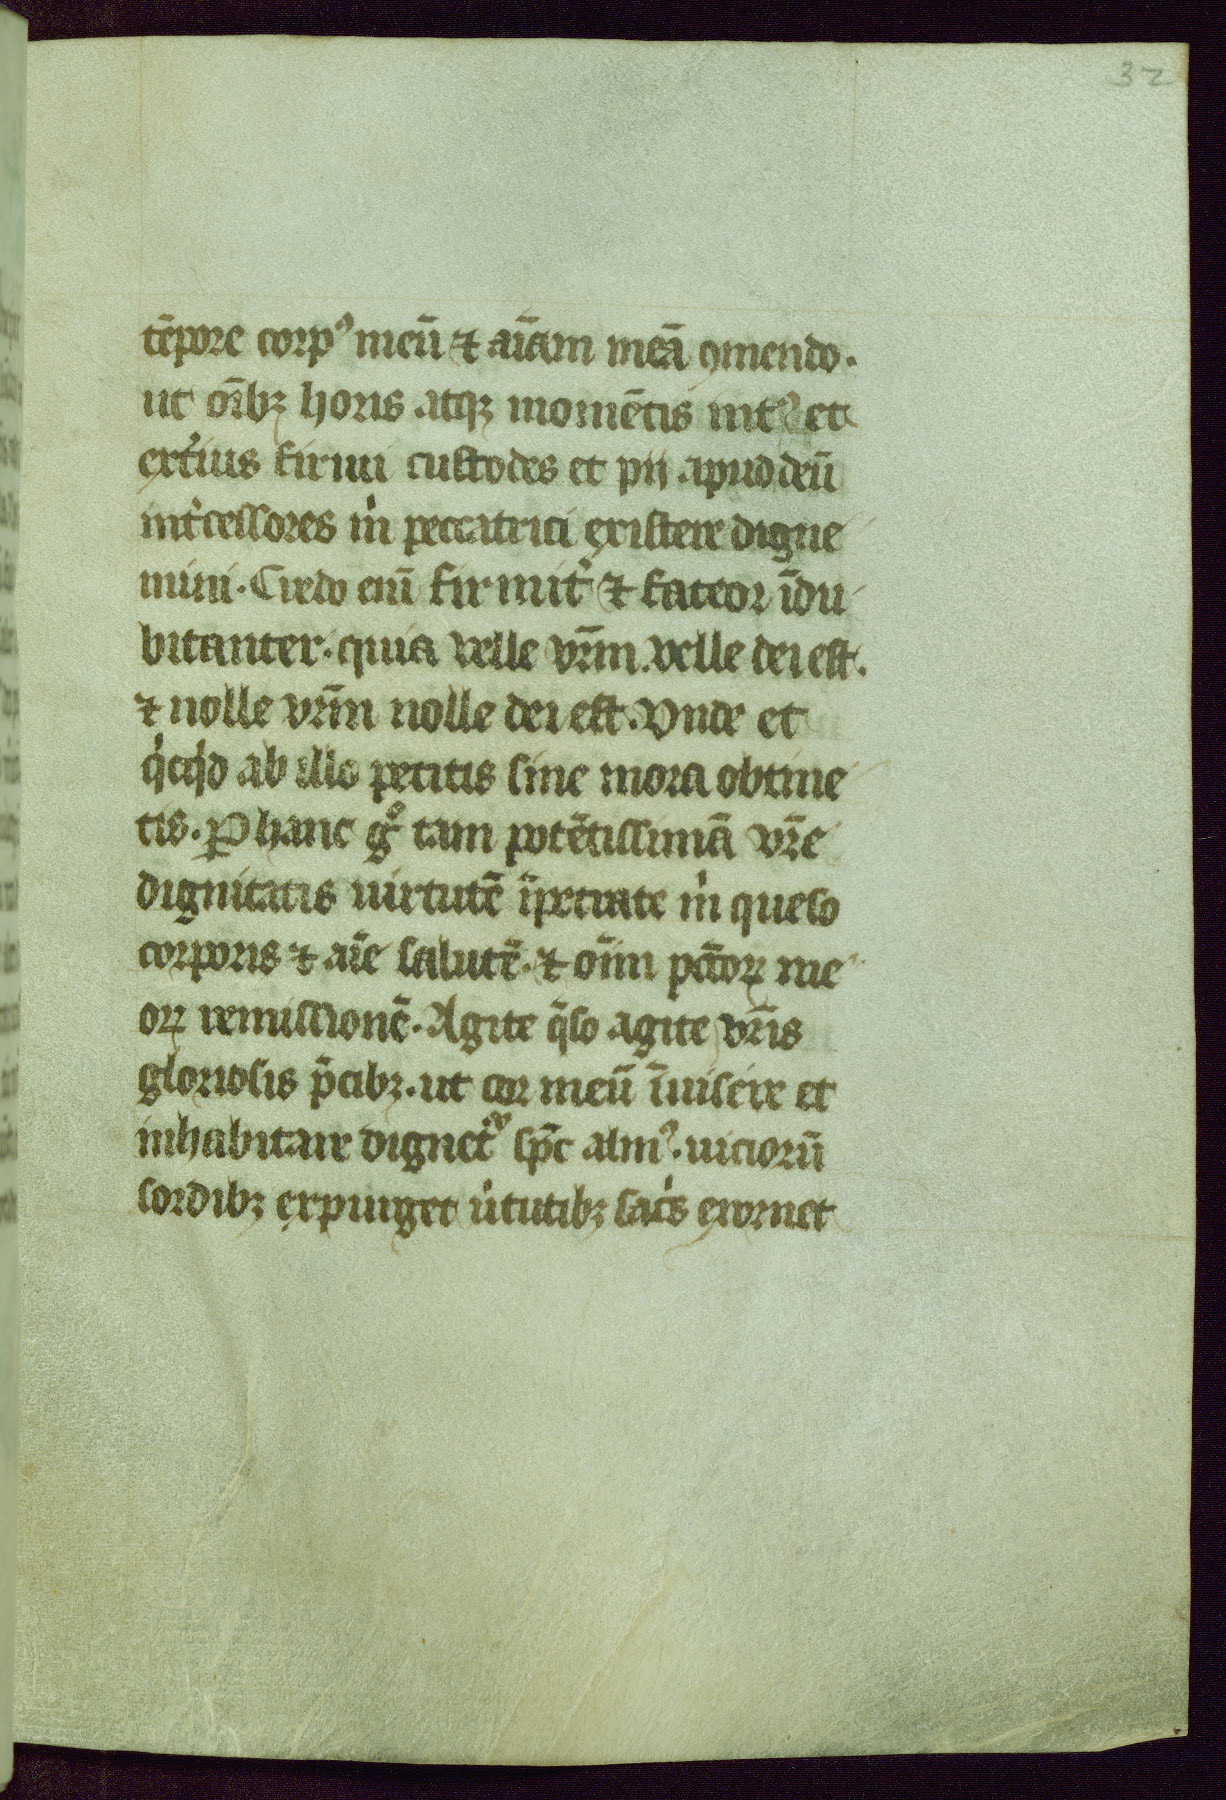 32
tēpore corpꝰ meū ⁊ aīam meā ꝯmendo.
ut oībꝫ horis atqꝫ momētis intꝰ et
exͭius firmi custodes et pii apud deū
intͭcessores m̍ peccatrici existere digne
mini. Credo enī firmit᷑ ⁊ fateor īdu
bitanter. quia velle vr̄m. velle dei est.
⁊ nolle vr̄m nolle dei est. Vnde et
q̍cq̍d ab illo petitis sine mora obtine
tis. P hanc gͦ tam potētissimā vr̄e
dignitatis uirtutē īpetrate m̍ queso
corporis ⁊ aīe salutē. ⁊ oīm pc̄toꝝ me
oꝝ remissionē. Agite q̄so agite vr̄is
gloriosis p̄cibꝫ. ut cor meū īuisere et
inhabitare dignet᷑ sp̄c almꝰ. uiciorū
sordibꝫ expurget u̍tutibꝫ sac̍s exornet